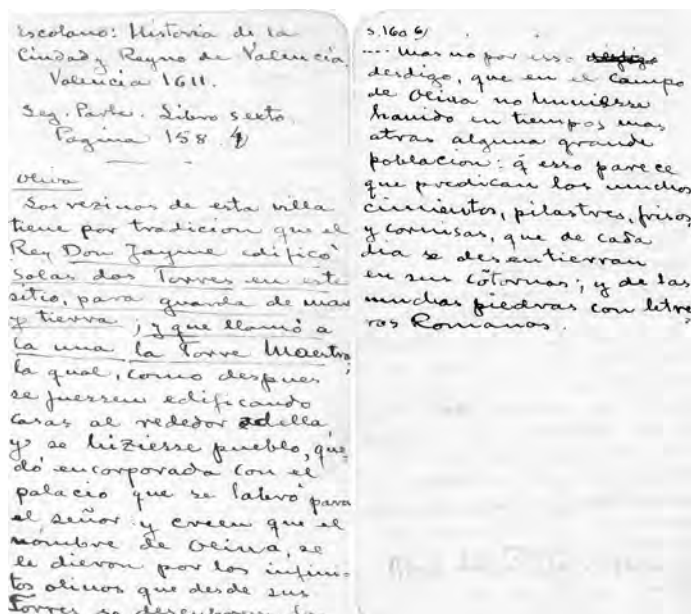 Escolano: Historia de la
Ciudad y Reyno de Valencia
Valencia 1611.
Seg. Parte. Libro sexto
Pagina 158
Oliva
Los vezinos de esta villa
tiene por tradicion que el
Rey Don Jayme edificó
solas dos Torres en este
sitio, para guarda de mar
y tierra; y que llamó a
la una, la Torre Maestra;
la qual, como despues
se fuessen edificando
casas al rededor della
y se hiziesse pueblo, que-
dó encorporada con el
palacio que se labró para
el señor: y creen que el
nombre de Oliva, se
le dieron por los infini-
tos olivos que desde sus
Torres se
s. 160 6)
.... Mas no por esso
desdigo, que en el campo
de Oliva no huuiesse
hauido en tiempos mas
atras alguna grande
poblacion: q̃ esso parece
que predican los muchos
cimientos, pilastres, frisos,
y cornisas, que de cada
dia se desentierran
en sus cõtornos; y de las
muchas piedras con letre
ros Romanos.